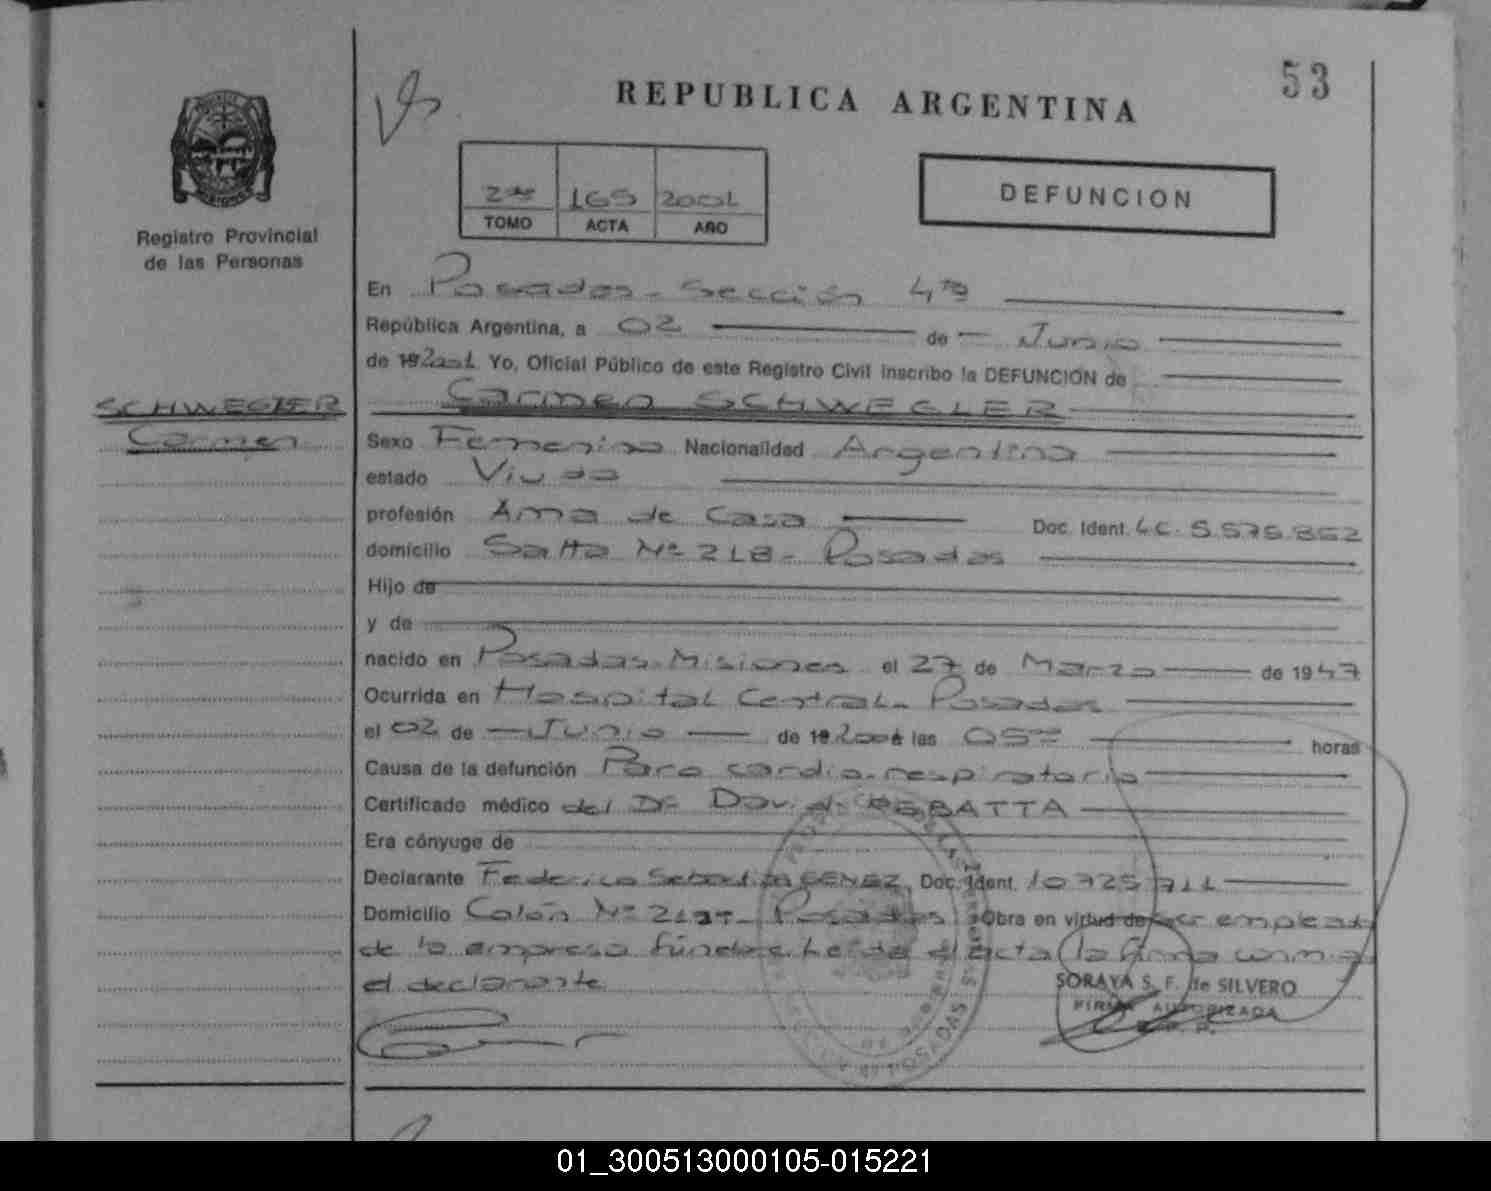 53
REPUBLICA ARGENTINA
DEFUNCION
2º 165 2001
TOMO ACTA AÑO
Registro Provincial
de las Personas
En Posadas - Sección 4ta
República Argentina, a 02 de Junio
de 19 2001 Yo, Oficial Público de este Registro Civil inscribo la DEFUNCION de
SCHWEGLER
Carmen
Carmen SCHWEGLER
Sexo Femenino Nacionalidad Argentina
estado Viuda
profesión Ama de Casa Doc. Ident. LC. 5.575.852
domicilio Salta Nº 218 - Posadas
Hijo de
y de
nacido en Posadas - Misiones el 27 de Marzo de 1947
Ocurrida en Hospital Central - Posadas
el 02 de Junio de 19 2001 las 05 horas
Causa de la defunción Paro cardio-respiratorio
Certificado médico del Dr. David REBATTA
Era cónyuge de
Declarante Federico Sebastián Doc. Ident. 10.725.711
Domicilio Colón Nº - Posadas Obra en virtud de ser empleado
de la empresa fúnebre Leída el acta la firma conmigo
el declarante
SORAYA S. F. de SILVERO
FIRMA AUTORIZADA
R. P. P.
POSADAS
01_300513000105-015221